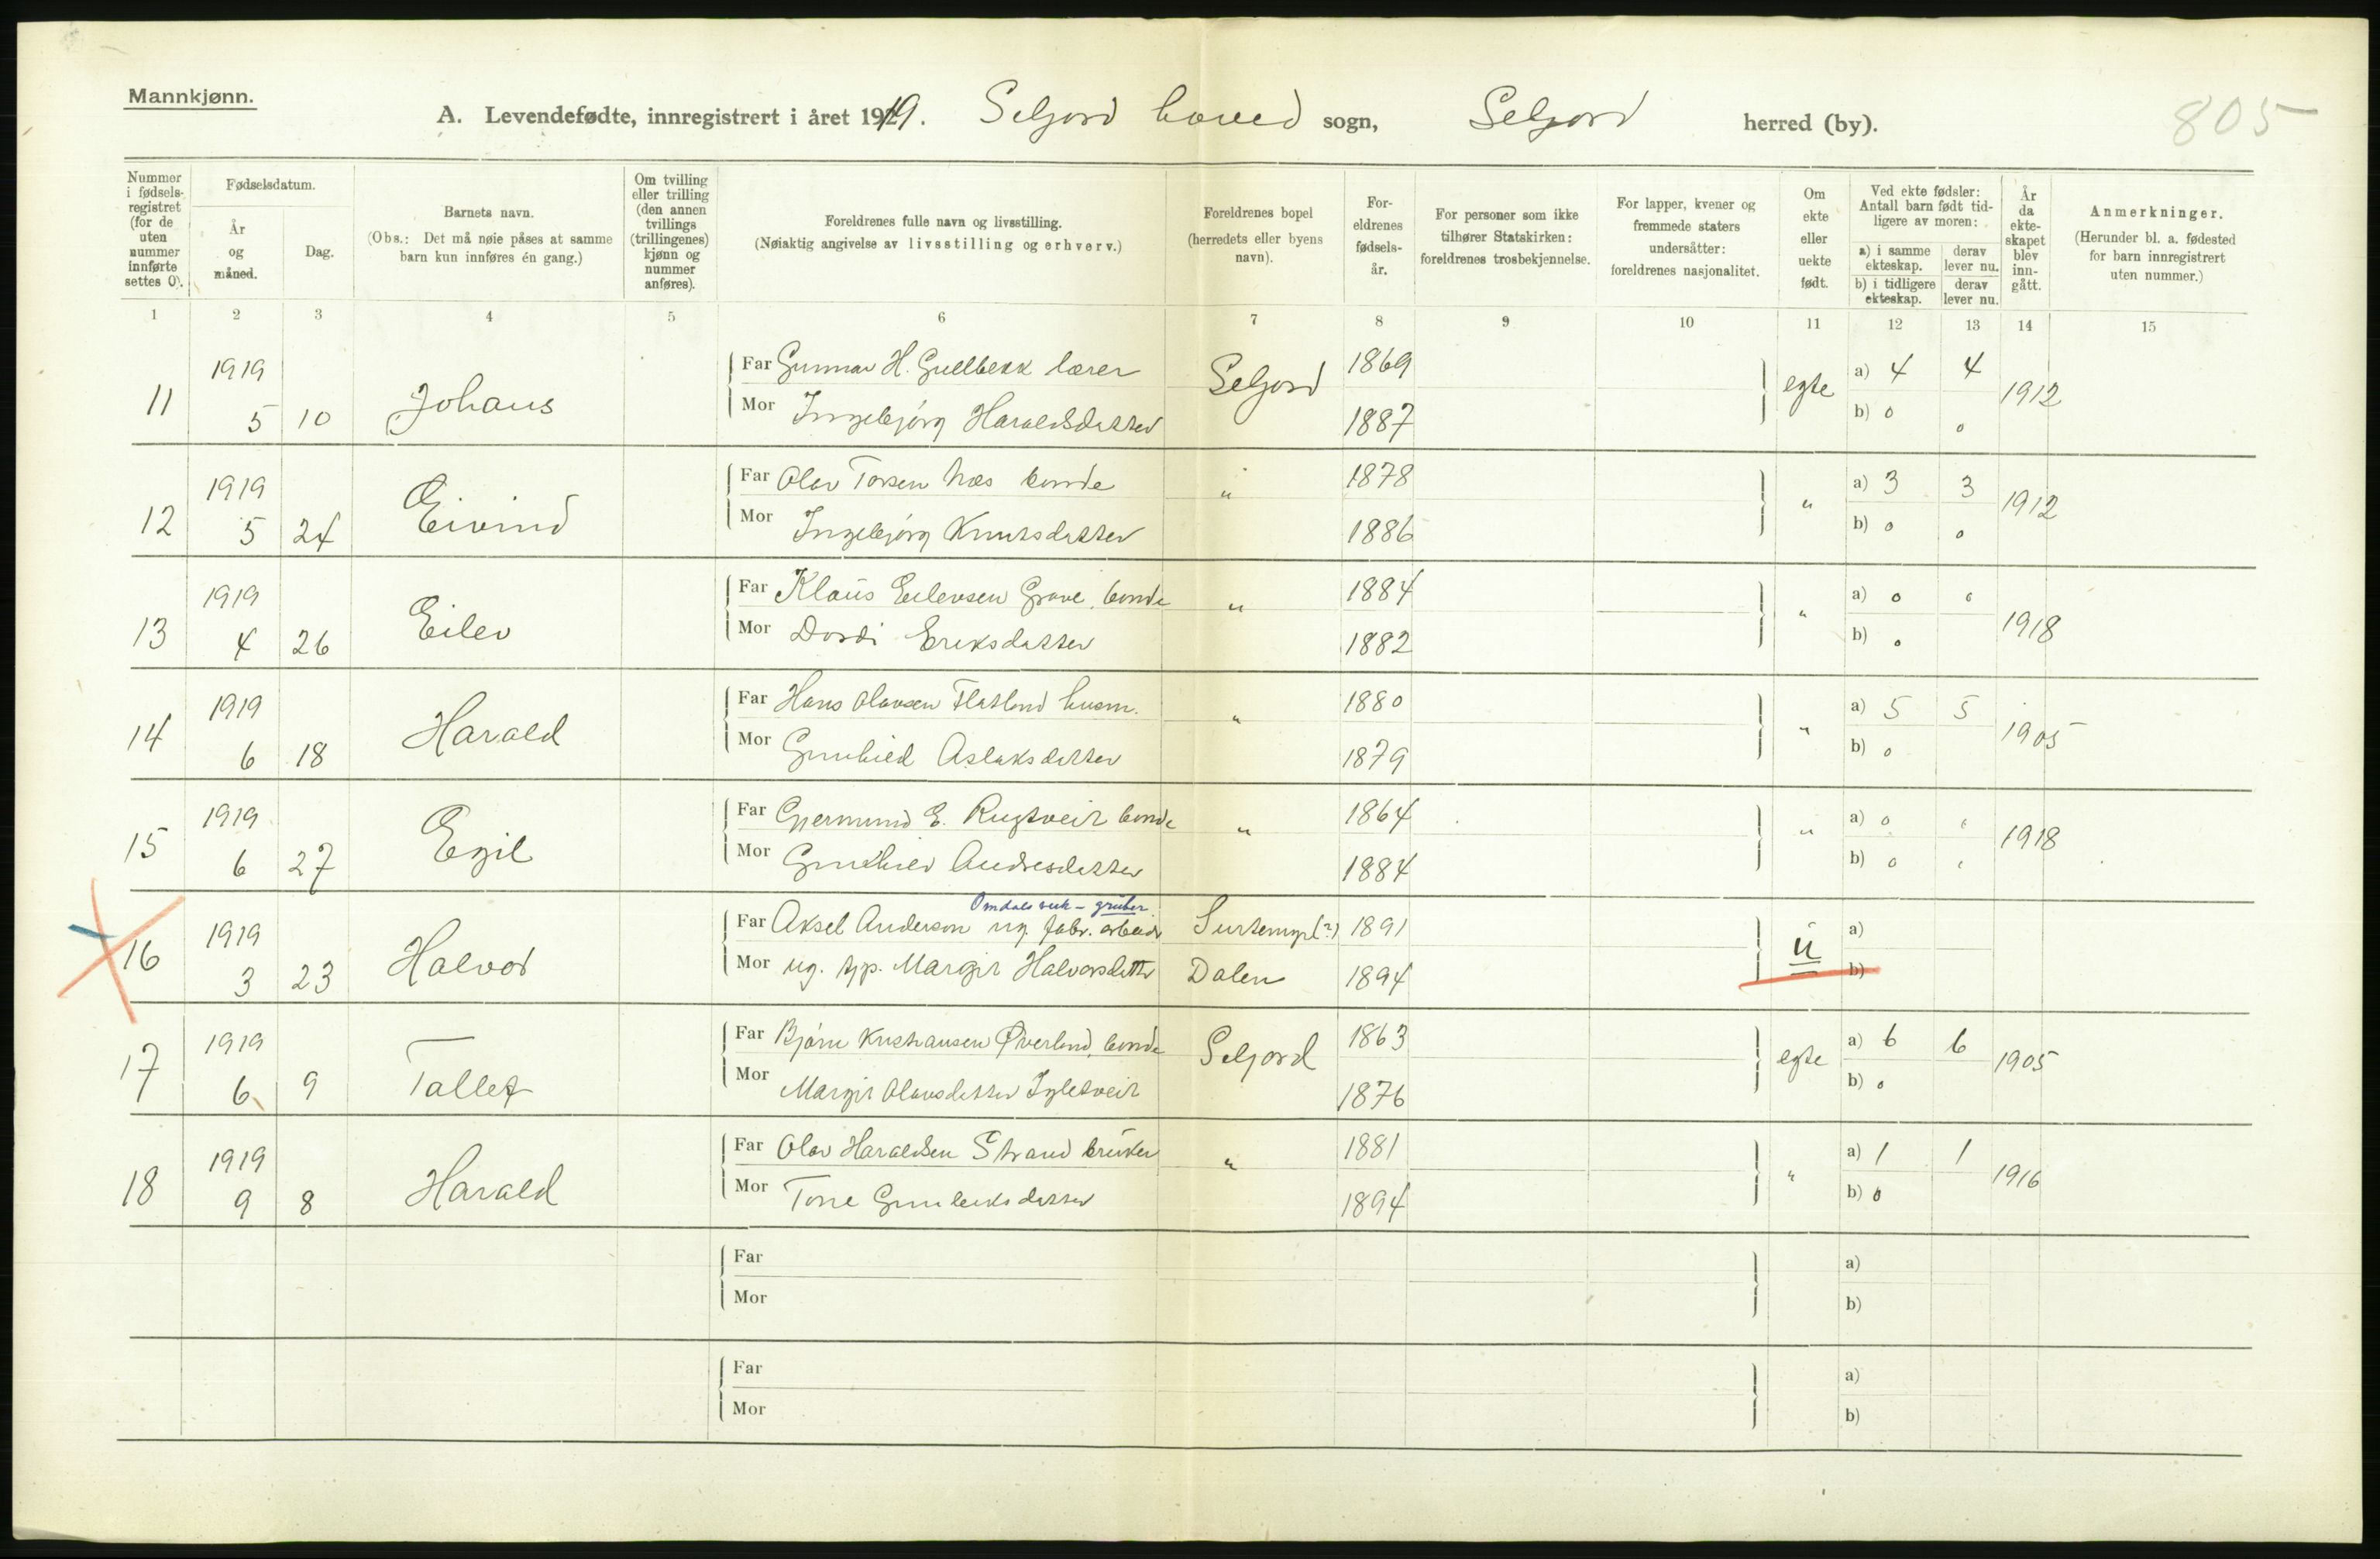 Mannkjønn.
A. Levendefødte, innregistrert i året 1919. Seljord hoved sogn, Seljord herred (by).
805
Nummer i fødselsregistret (for de uten nummer innførte settes 0).
Fødselsdatum.
År og måned.
Dag.
Barnets navn.
(Obs.: Det må nøie påses at samme barn kun innføres én gang.)
Om tvilling eller trilling (den annen tvillings (trillingenes) kjønn og nummer anføres).
Foreldrenes fulle navn og livsstilling.
(Nøiaktig angivelse av livsstilling og erhverv.)
Foreldrenes bopel (herredets eller byens navn).
Foreldrenes fødselsår.
For personer som ikke tilhører Statskirken: foreldrenes trosbekjennelse.
For lapper, kvener og fremmede staters undersåtter: foreldrenes nasjonalitet.
Om ekte eller uekte født.
Ved ekte fødsler: Antall barn født tidligere av moren:
a) i samme ekteskap. derav lever nu.
b) i tidligere ekteskap. derav lever nu.
År da ekteskapet blev inngått.
Anmerkninger.
(Herunder bl. a. fødested for barn innregistrert uten nummer.)
1 2 3 4 5 6 7 8 9 10 11 12 13 14 15
11 1919 5 10 Johans
Far Gunnar H. Gullbekk lærer Seljord 1869 egte a) 4 4 1912
Mor Ingebjörg Haraldsdatter 1887 b) 0 0
12 1919 5 24 Eivind
Far Olav Torsen Næs bonde " 1878 " a) 3 3 1912
Mor Ingebjörg Knutsdatter 1886 b) 0 0
13 1919 4 26 Eilev
Far Klaus Eilevsen Grave, bonde " 1884 " a) 0 0 1918
Mor Dordi Eriksdatter 1882 b) 0
14 1919 6 18 Harald
Far Hans Olavsen Flatland husm. " 1880 " a) 5 5 1905
Mor Gunhild Aslaksdatter 1879 b) 0
15 1919 6 27 Egil
Far Gjermund E. Rugtveit bonde " 1864 " a) 0 0 1918
Mor Gunhild Andresdatter 1884 b) 0 0
Omdals verk - gruber
16 1919 3 23 Halvor
Far Aksel Anderson ug. fabr. arbeider 1891 u a)
Mor ug. tjp. Margit Halvorsdatter Dalen 1894 b)
17 1919 6 9 Tallef
Far Bjørn Kristiansen Øverland, bonde Seljord 1863 egte a) 6 6 1905
Mor Margit Olavsdatter Igletveit 1876 b) 0
18 1919 9 8 Harald
Far Olav Haraldsen Strand bruker " 1881 " a) 1 1 1916
Mor Tone Gunleiksdatter 1894 b) 0
Far a)
Mor b)
Far a)
Mor b)